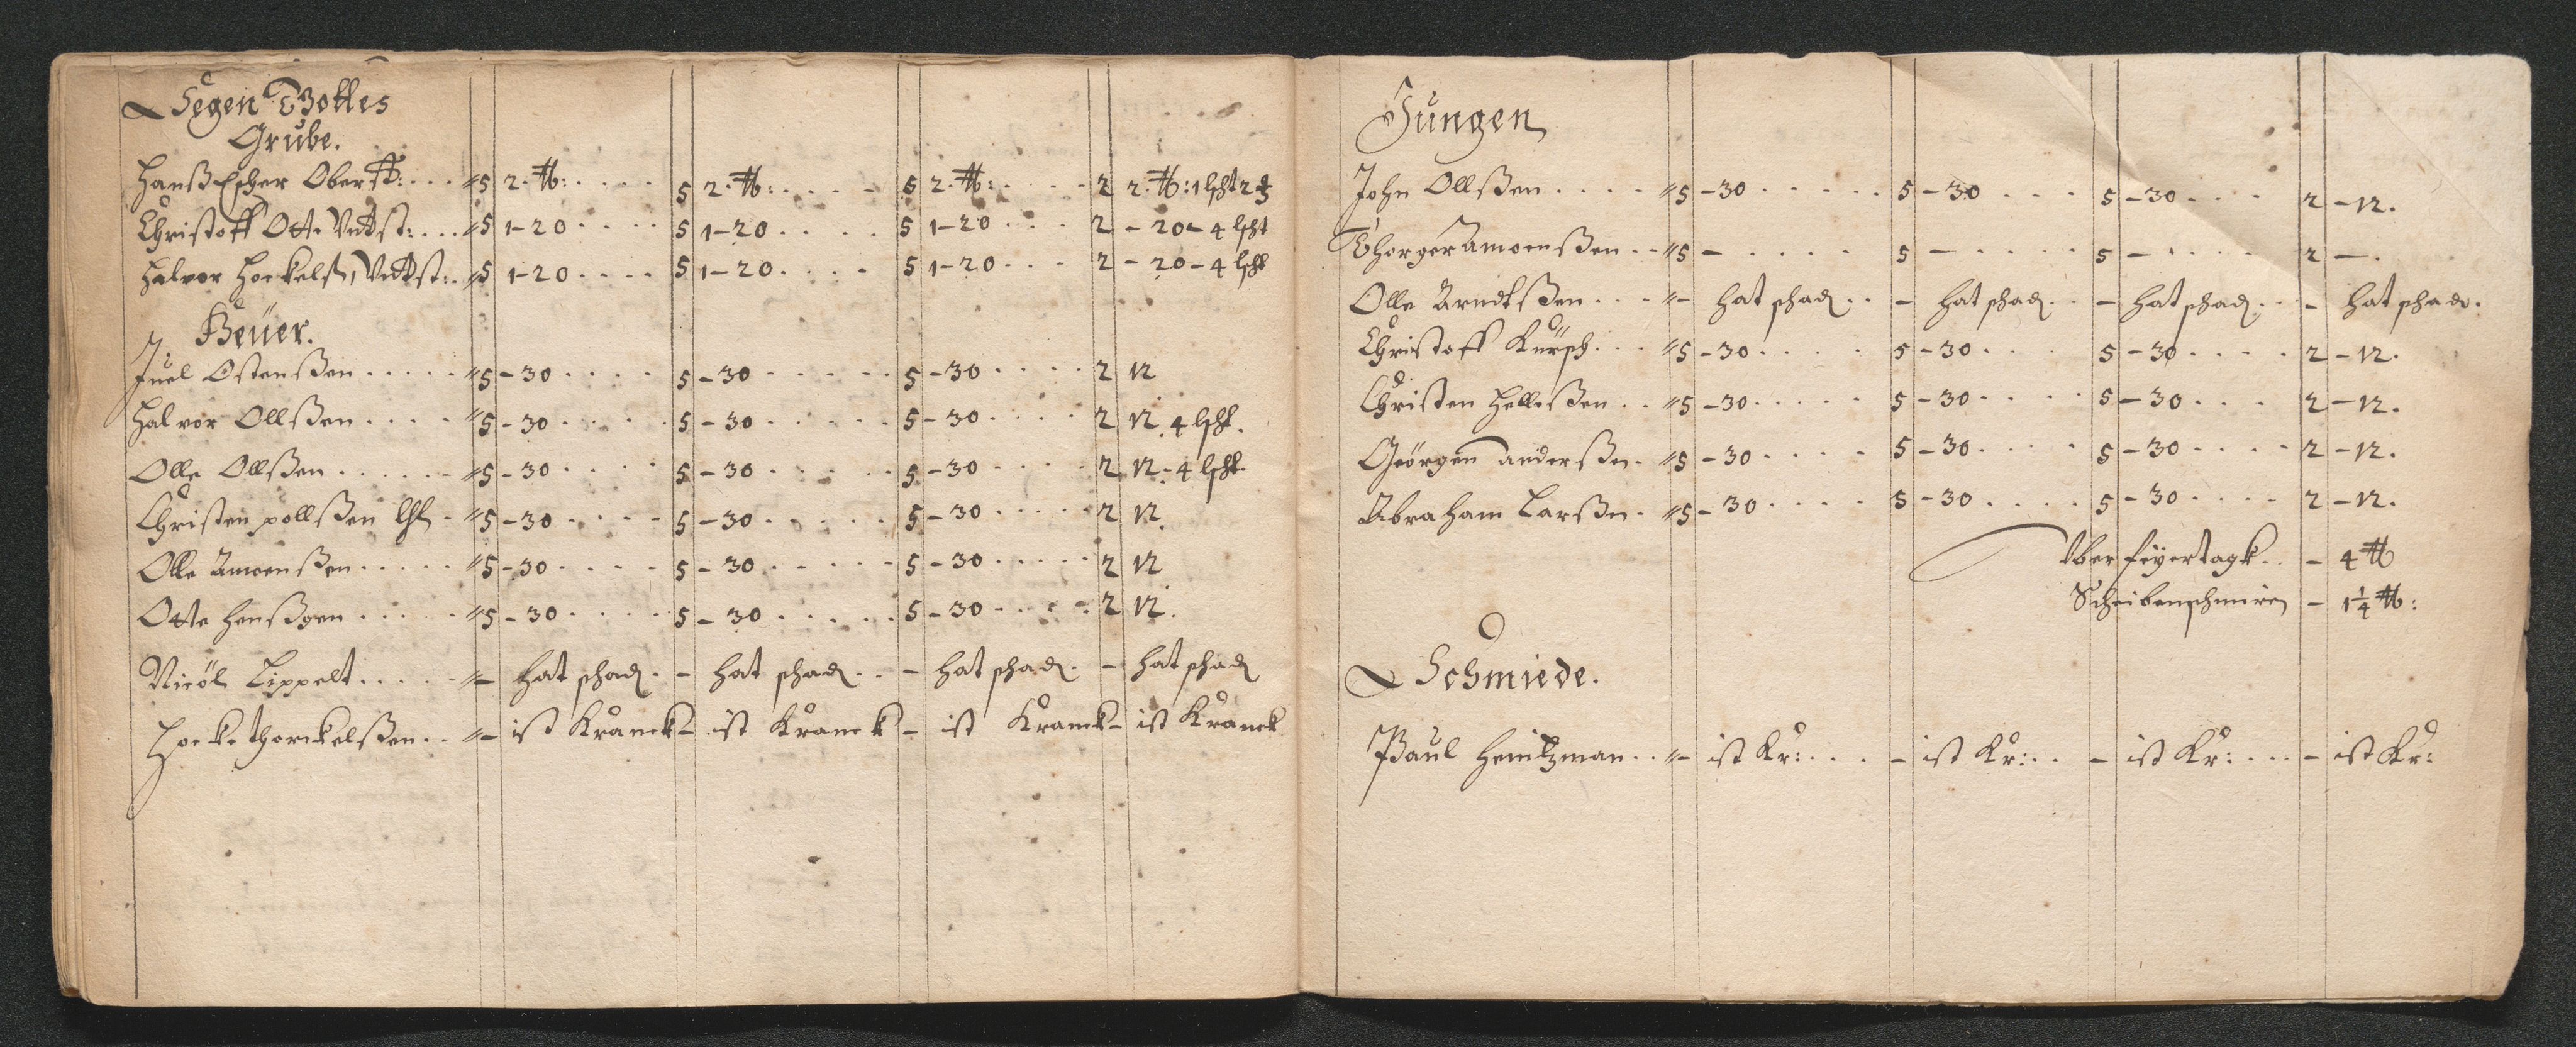 Segen Gottes
Grube.
Hanß Escher Oberst: . . . 5 2. ℔: . . . . 5 2. ℔: . . . . 5 2. ℔: . . . . 2 2. ℔: 1 lßht 2
Christoff Otte Undtst: . . . 5 1-20 . . . . 5 1-20 . . . . 5 1-20 . . . . 2 - 20 - 4 lßht
Halvor Undtst: . . 5 1-20 . . . . 5 1-20 . . . . 5 1-20 . . . 2 - 20 - 4 lßht
Heüer.
Juel Ostenßen . . . . . 5 - 30 . . . . 5 - 30 . . . . . 5 - 30 . . . . 2 12
Halvor Ollßen . . . . 5 - 30 . . . . 5 - 30 . . . . . 5 - 30 . . . . 2 12. 4 lßht.
Olle Ollßen . . . . . . 5 - 30 . . . . 5 - 30 . . . . . 5 - 30 . . . . 2 12 - 4 lßht
Christen pollßen . 5 - 30 . . . . 5 - 30 . . . . . 5 - 30 . . . . . 2 12.
Olle Amoenßen . . . . . 5 - 30 . . . . 5 - 30 . . . . . 5 - 30 . . . . . 2 12
Otte Henßgen . . . . . 5 - 30 . . . . 5 - 30 . . . . . 5 - 30 . . . . 2 12.
Nicöl Lippelt . . . . . - hat schad. - hat schad. . - hat schad. - hat schad
thorckelßen . . - ist Kranck - ist Kranck - ist Kranck - ist Kranck
Jungen
John Ollßen . . . . 5 - 30 . . . . . 5 - 30 . . . . 5 - 30 . . . . 2 - 12.
Thorger Amoenßen . . 5 - . . . . . 5 - . . . . . 5 - . . . . 2 - .
Olle Arndtßen . . . - hat schad. . - hat schad. . - hat schad. . . - hat schad.
Christoff Kürsch . . . 5 - 30 . . . . 5 - 30 . . . 5 - 30 . . . . 2 - 12.
Christen Hellißen . . 5 - 30 . . . . . 5 - 30 . . . . 5 - 30 . . . 2 - 12.
Geörgen anderßen . 5 - 30 . . . . 5 - 30 . . . . 5 - 30 . . . . 2 - 12.
Abraham Larßen . 5 - 30 . . . . 5 - 30 . . . . 5 - 30 . . . . 2 - 12.
Uber feyertagk . . - 4 ℔
Scheibenschmiren - 1¼ ℔:
Schmiede.
Paul Heintzman . . - ist Kr: . . . - ist Kr: . . - ist Kr: . . . - ist Kr: